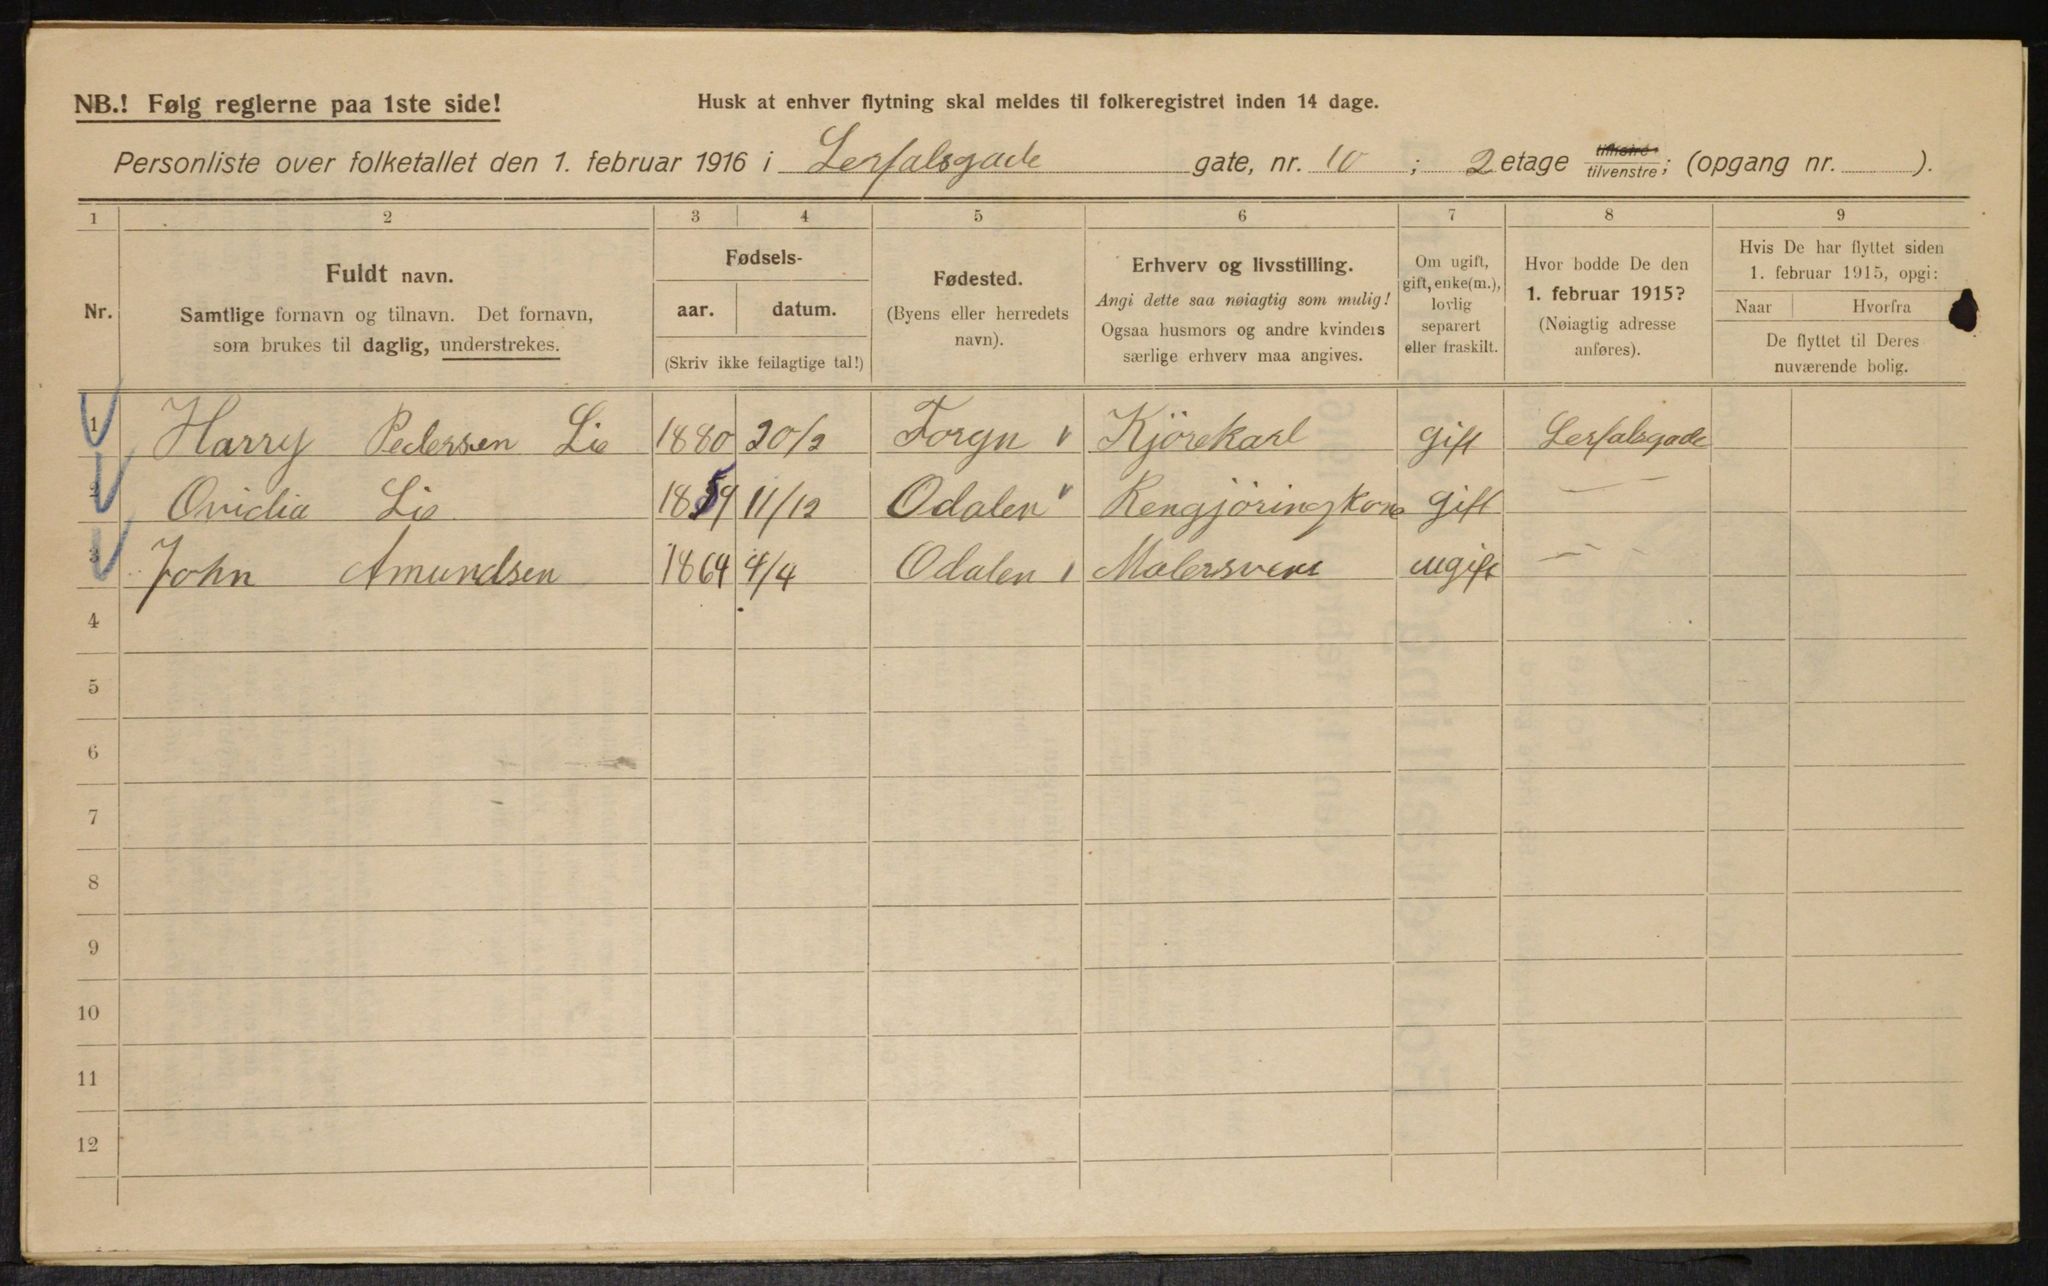 NB.! Følg reglerne paa 1ste side!
Husk at enhver flytning skal meldes til folkeregistret inden 14 dage.
Personliste over folketallet den 1. februar 1916 i Lerfalsgade gate, nr. 10 ; 2 etage tilhøire tilvenstre; (opgang nr. ).
1 2 3 4 5 6 7 8 9
Nr.
Fuldt navn.
Samtlige fornavn og tilnavn. Det fornavn,
som brukes til daglig, understrekes.
Fødsels-
aar. datum.
(Skriv ikke feilagtige tal!)
Fødested.
(Byens eller herredets
navn).
Erhverv og livsstilling.
Angi dette saa nøiagtig som mulig!
Ogsaa husmors og andre kvinders
særlige erhverv maa angives.
Om ugift,
gift, enke(m.),
lovlig
separert
eller fraskilt.
Hvor bodde De den
1. februar 1915?
(Nøiagtig adresse
anføres).
Hvis De har flyttet siden
1. februar 1915, opgi:
Naar Hvorfra
De flyttet til Deres
nuværende bolig.
1 Harry Pedersen Lie 1880 20/2 Kjørekarl gift Lerfalsgade
2 Ovidia Lie 1859 11/12 Odalen Rengjøringkone gift — —
3 John Amundsen 1864 4/4 Odalen Malersvend ugift — —
4
5
6
7
8
9
10
11
12